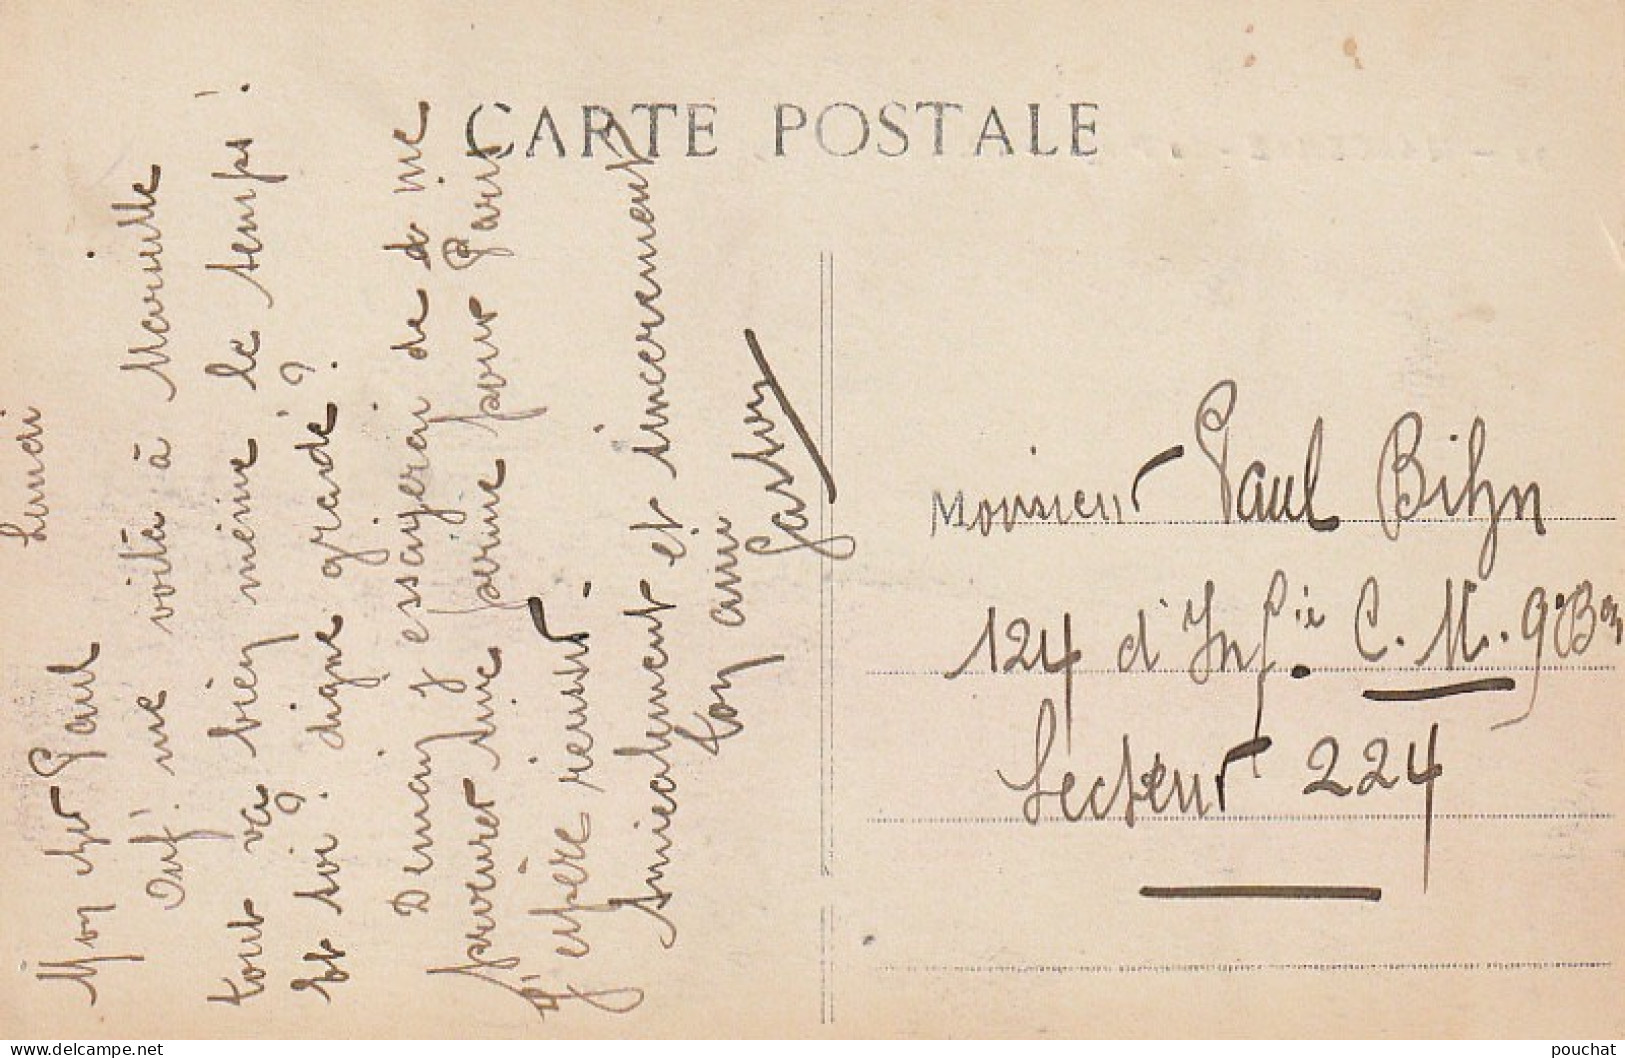 CARTE POSTALE
Lundi
Mon cher Paul
Ouf! me voilà à Marseille
tout va bien même le temps!
Et toi? digne grandé?
Demain j'essayerai de me
procurer une perme pour Paris
j'espère réussir.
Amicalement et sincerement
ton ami
Gaston
Monsieur Paul Bihn
124 d'Inf.ie C. M. 9e Bon
Secteur 224
https://www.delcampe.net
pouchat